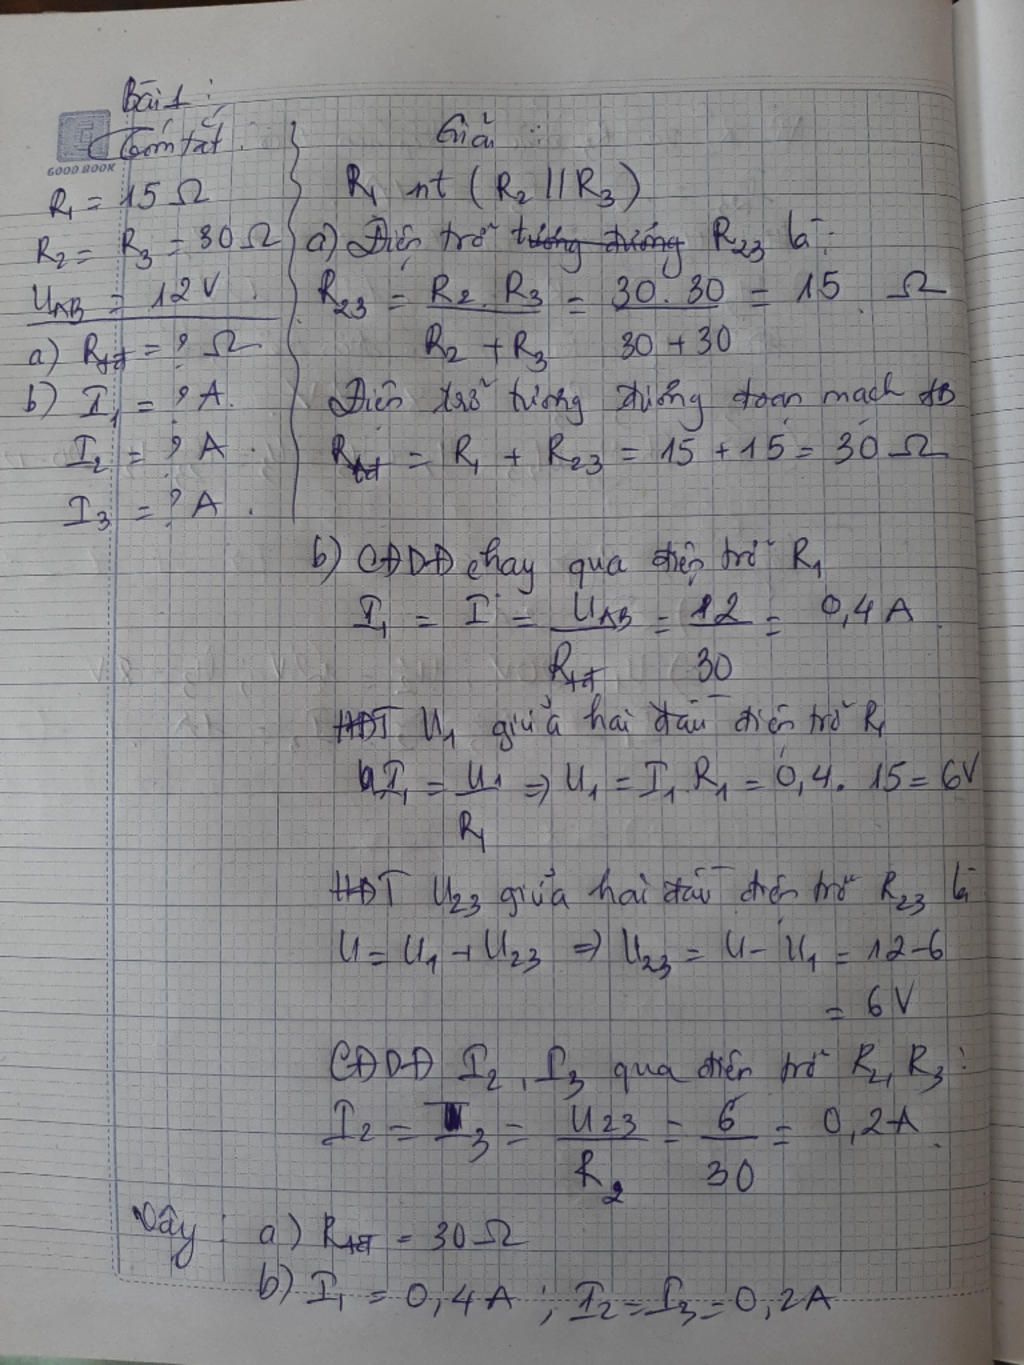 Bài 1 :
Tóm tắt :
GOOD BOOK
R₁ = 15 Ω
R₂ = R₃ = 30 Ω
U_AB = 12 V.
a) R_tđ = ? Ω
b) I₁ = ? A.
I₂ = ? A.
I₃ = ? A.
Giải :
R₁ nt (R₂ // R₃)
a) Điện trở tương đương R₂₃ là :
R₂₃ = R₂ . R₃ / R₂ + R₃ = 30 . 30 / 30 + 30 = 15 Ω
Điện trở tương đương đoạn mạch AB
R_tđ = R₁ + R₂₃ = 15 + 15 = 30 Ω
b) CĐDĐ chạy qua điện trở R₁
I₁ = I = U_AB / R_tđ = 12 / 30 = 0,4 A.
HĐT U₁ giữa hai đầu điện trở R₁
I₁ = U₁ / R₁ => U₁ = I₁ . R₁ = 0,4 . 15 = 6V
HĐT U₂₃ giữa hai đầu điện trở R₂₃ là
U = U₁ + U₂₃ => U₂₃ = U - U₁ = 12 - 6
= 6 V
CĐDĐ I₂, I₃ qua điện trở R₂, R₃ :
I₂ = I₃ = U₂₃ / R₂ = 6 / 30 = 0,2 A.
Vậy : a) R_tđ = 30 Ω
b) I₁ = 0,4 A ; I₂ = I₃ = 0,2 A